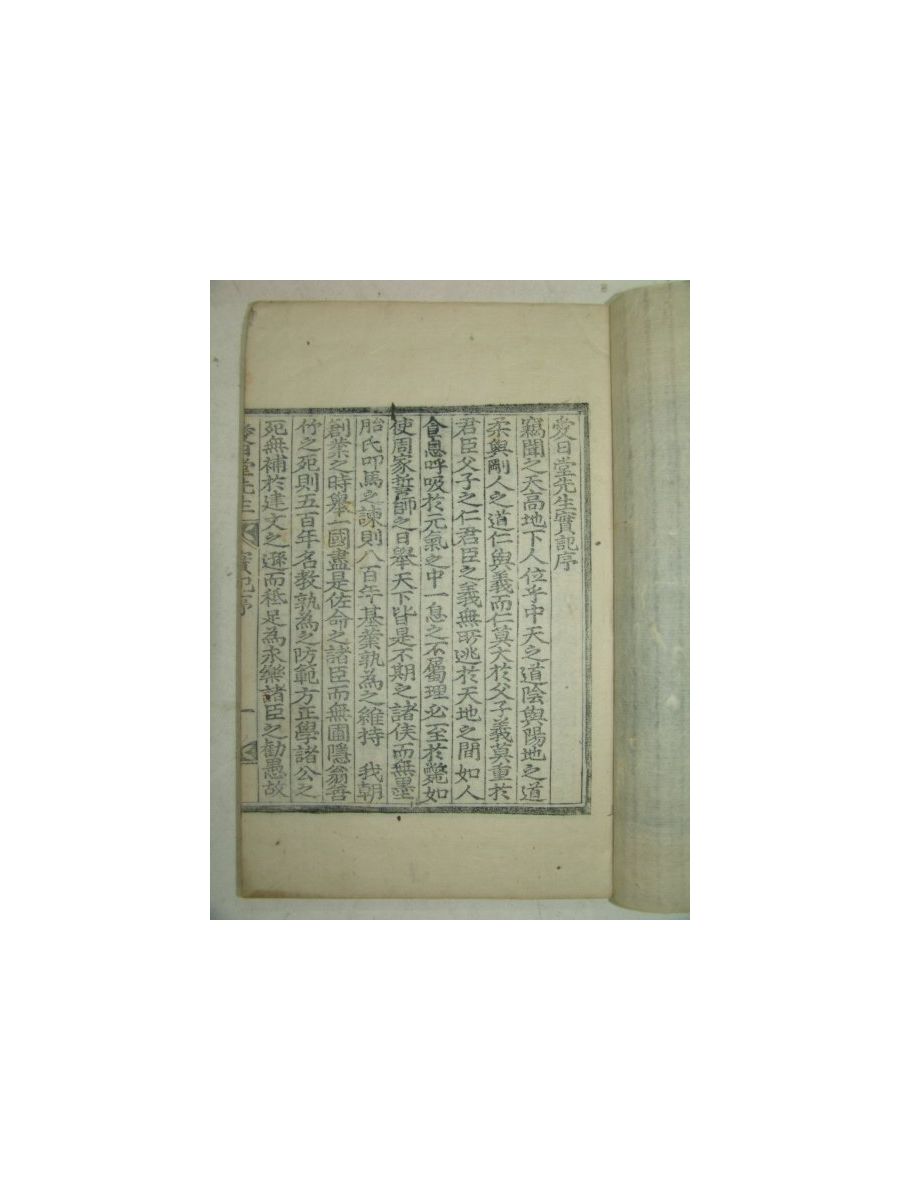 愛日堂先生實記序
竊聞之天高地下人位乎中天之道陰與陽地之道
柔與剛人之道仁與義而仁莫大於父子義莫重於
君臣父子之仁君臣之義無所逃於天地之間如人
食息呼吸於元氣之中一息之不屬理必至於斃如
使周家誓師之日舉天下皆是不期之諸侯而無墨
胎氏叩馬之諫則八百年基業孰為之維持 我朝
創業之時舉一國盡是佐命之諸臣而無圃隱翁善
竹之死則五百年名教孰為之防範方正學諸公之
死無補於建文之遜而秪足為永樂諸臣之勸愚故
愛日堂先生 實記序 一